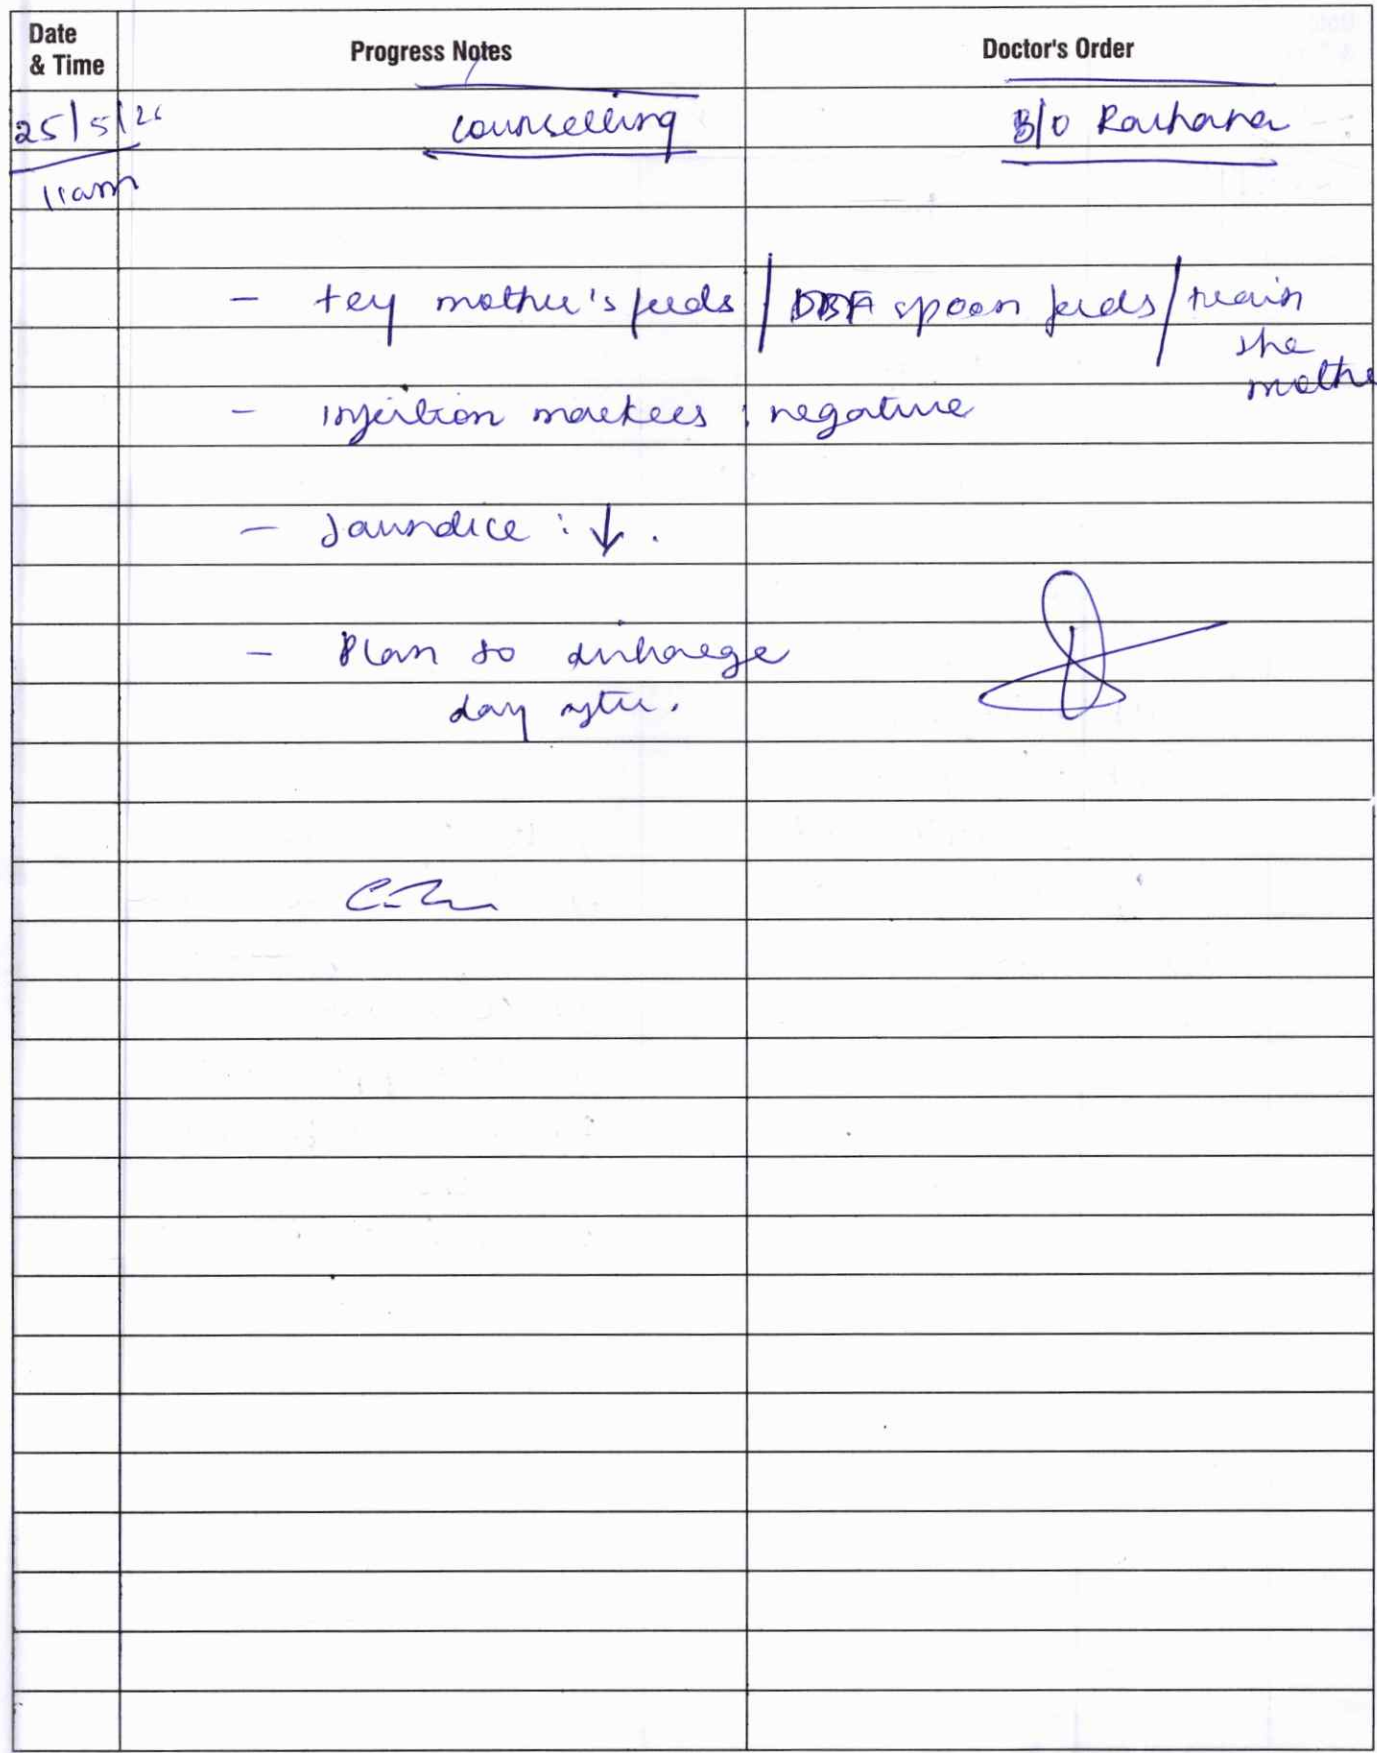 Date & Time Progress Notes Doctor's Order
25/5/26 counselling B/O
11am
- try mother's feeds / DBF spoon feeds / train the mother
- infection markers : negative
- Jaundice : ↓ .
- Plan to discharge
day after.